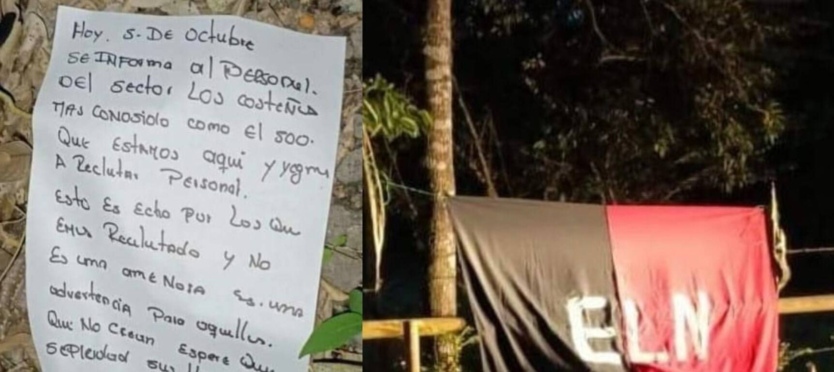 Hoy. 5. DE octubre
SE INForma al PErsonal.
DEl sector Los costeños
MAS CONOSIDO como El 500.
Que Estamos aqui y yegms
A Reclutar Personal.
Esto Es Echo Por Los Qu
Emus Reclutado y No
Es una amENasa Es. una
advertencia Para aquellus.
Que No crean Espere Que
ELN